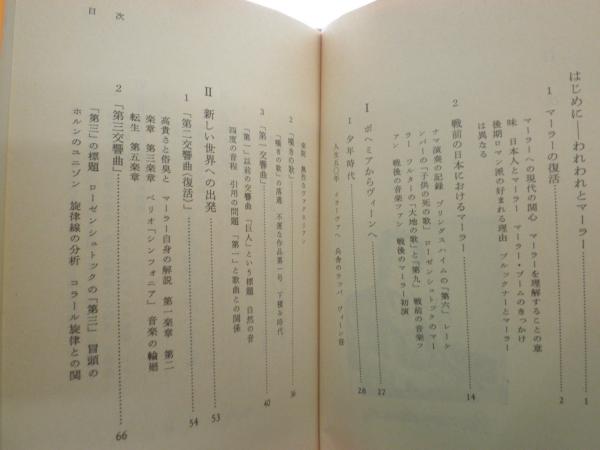 はじめに——われわれとマーラー……1
1 マーラーの復活……2
マーラーへの現代の関心 マーラーを理解することの意
味 日本人とマーラー マーラー・ブームのきっかけ
後期ロマン派の好まれる理由 ブルックナーとマーラー
は異なる
2 戦前の日本におけるマーラー……14
ナマ演奏の記録 プリングスハイムの「第六」 レーケ
ンパーの「子供の死の歌」 ローゼンシュトックのマー
ラー ワルターの「大地の歌」と「第九」 戦前の音楽フ
ァン 戦後の音楽ファン 戦後のマーラー初演
Ⅰ ボヘミアからヴィーンへ……27
1 少年時代……28
人生五〇年 イーグラウへ 兵舎のラッパ ヴィーン音
楽院 熱烈なヴァグネリアン
2 「嘆きの歌」……36
「嘆きの歌」の落選 不運な作品第一号 下積み時代
3 「第一交響曲」……40
「第一」以前の交響曲 「巨人」という標題 自然の音
四度の音程 引用の問題 「第一」と歌曲との関係
Ⅱ 新しい世界への出発……53
1 「第二交響曲(復活)」……54
高貴さと俗臭と マーラー自身の解説 第一楽章 第二
楽章 第三楽章 ベリオ「シンフォニア」 音楽の輪廻
転生 第五楽章
2 「第三交響曲」……66
「第三」の標題 ローゼンシュトックの「第三」 冒頭の
ホルンのユニゾン 旋律線の分析 コラール旋律との関
目次